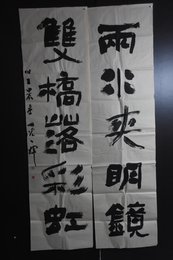 雨水夾明鏡
雙橋落彩虹